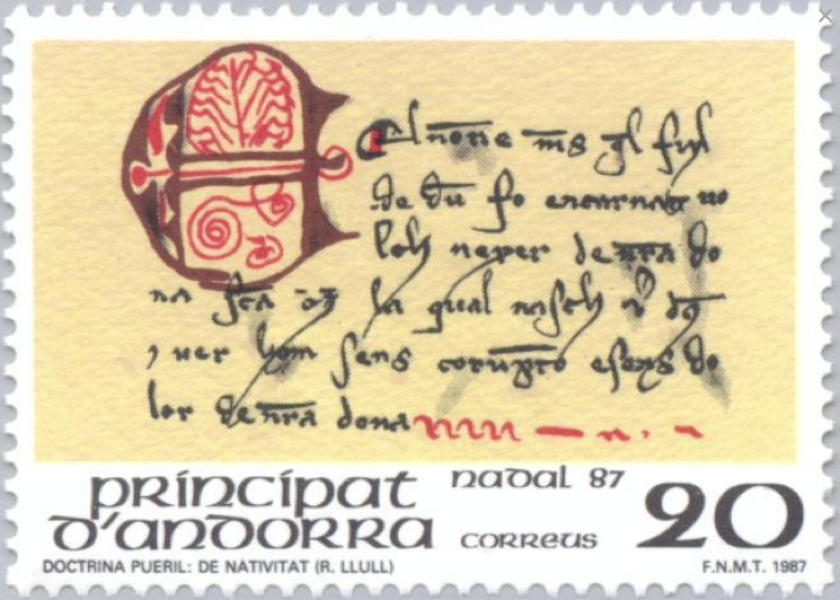 El nōne m̄s gl fiyl
de dū fo encarnat uo
lch nexer de n̄ra do
na sc̄a la qual nasch
uer hom sens esens do
lor de n̄ra dona
principat nadal 87
d'andorra correus 20
DOCTRINA PUERIL: DE NATIVITAT (R. LLULL) F.N.M.T. 1987